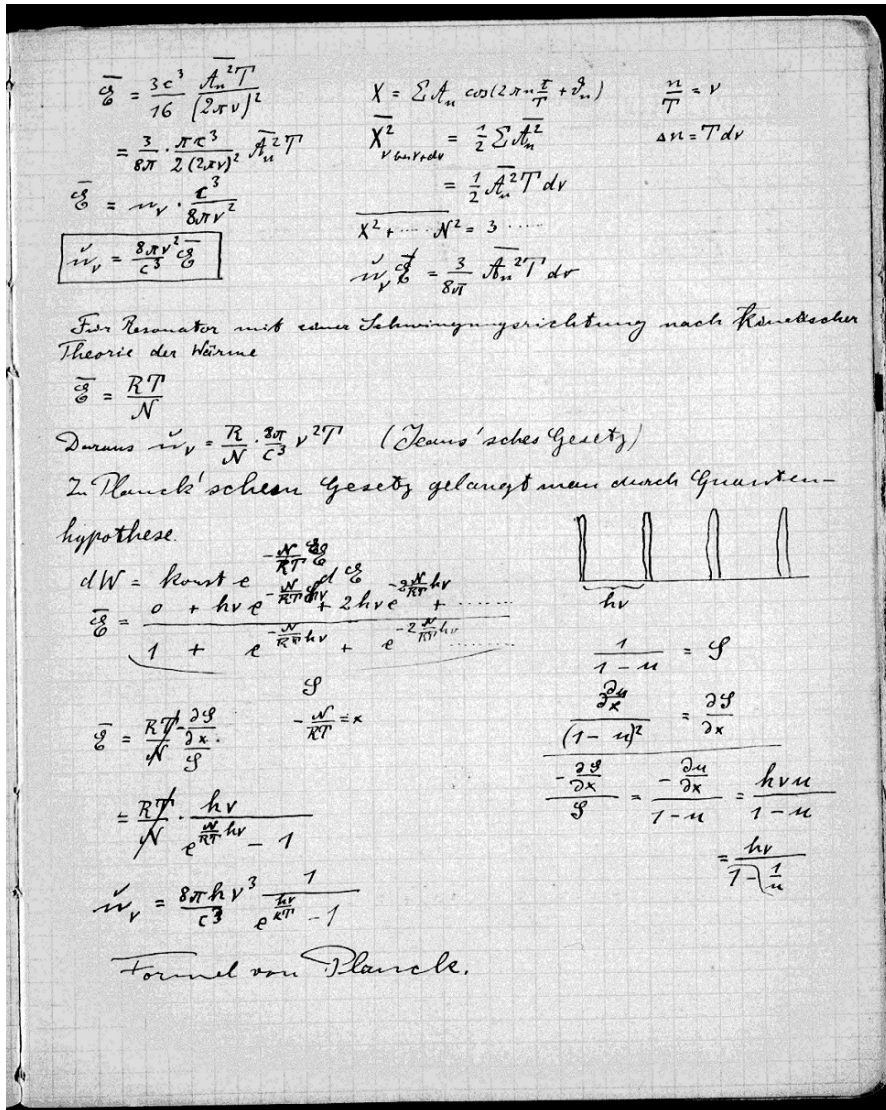 ℰ̄ = 3c³/16 · A̅ₙ²T/(2πν)²
= 3/8π · πc³/2(2πν)² A̅ₙ²T
ℰ̄ = u_ν · c³/8πν²
u_ν = 8πν²/c³ ℰ̄
X = ΣAₙ cos(2πn t/T + ϑₙ)
n/T = ν
X̅²_ν bis ν+dν = ½ ΣA̅ₙ²
Δn = Tdν
= ½ A̅ₙ²Tdν
X² + ···· N² = 3 ·····
= 3/8π A̅ₙ²Tdν
Für Resonator mit einer Schwingungsrichtung nach kinetischer
Theorie der Wärme
ℰ̄ = RT/N
Daraus u_ν = R/N · 8π/c³ ν²T (Jeans'sches Gesetz)
Zu Planck'schem Gesetz gelangt man durch Quanten-
hypothese.
dW = konst e^(-N/RT ℰ) dℰ
ℰ̄ = (0 + hν e^(-N/RT hν) + 2hν e^(-2N/RT hν) + ·······)/(1 + e^(-N/RT hν) + e^(-2 N/RT hν) ·······)
φ
hν
ℰ̄ = (-∂φ/∂x)/φ
-N/RT = x
= hν/(e^(N/RT hν) - 1)
u_ν = 8πhν³/c³ · 1/(e^(hν/RT) - 1)
1/(1 - u) = φ
(∂u/∂x)/(1 - u)² = ∂φ/∂x
(-∂φ/∂x)/φ = (-∂u/∂x)/(1 - u) = hνu/(1 - u)
= hν/(1 - 1/u)
Formel von Planck.